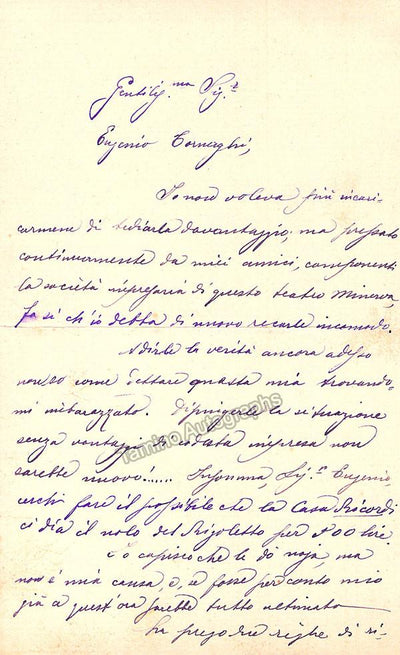 Gentiliss.ma Sig.r
Eugenio Tornaghi,
Io non voleva più incari-
carmene di tediarla davantaggio, ma pressato
continuamente da miei amici, componenti
la società impresaria di questo teatro Minerva,
fa si ch'io debba di nuovo recarle incomodo.
A dirle la verità ancora adesso
non so come dettare questa mia trovando-
mi imbarazzato. Dipingerle la situazione
senza vantaggi di codesta impresa non
sarebbe nuovo!...... Insomma, Sig.r Eugenio
cerchi fare il possibile che la Casa Ricordi
ci dia il nolo del Rigoletto per 800 lire.
capisco che le do noja, ma
non è mia causa, e, se fosse per conto mio
già a quest'ora sarebbe tutto ultimato
La prego due righe di ri-
Tamino Autographs